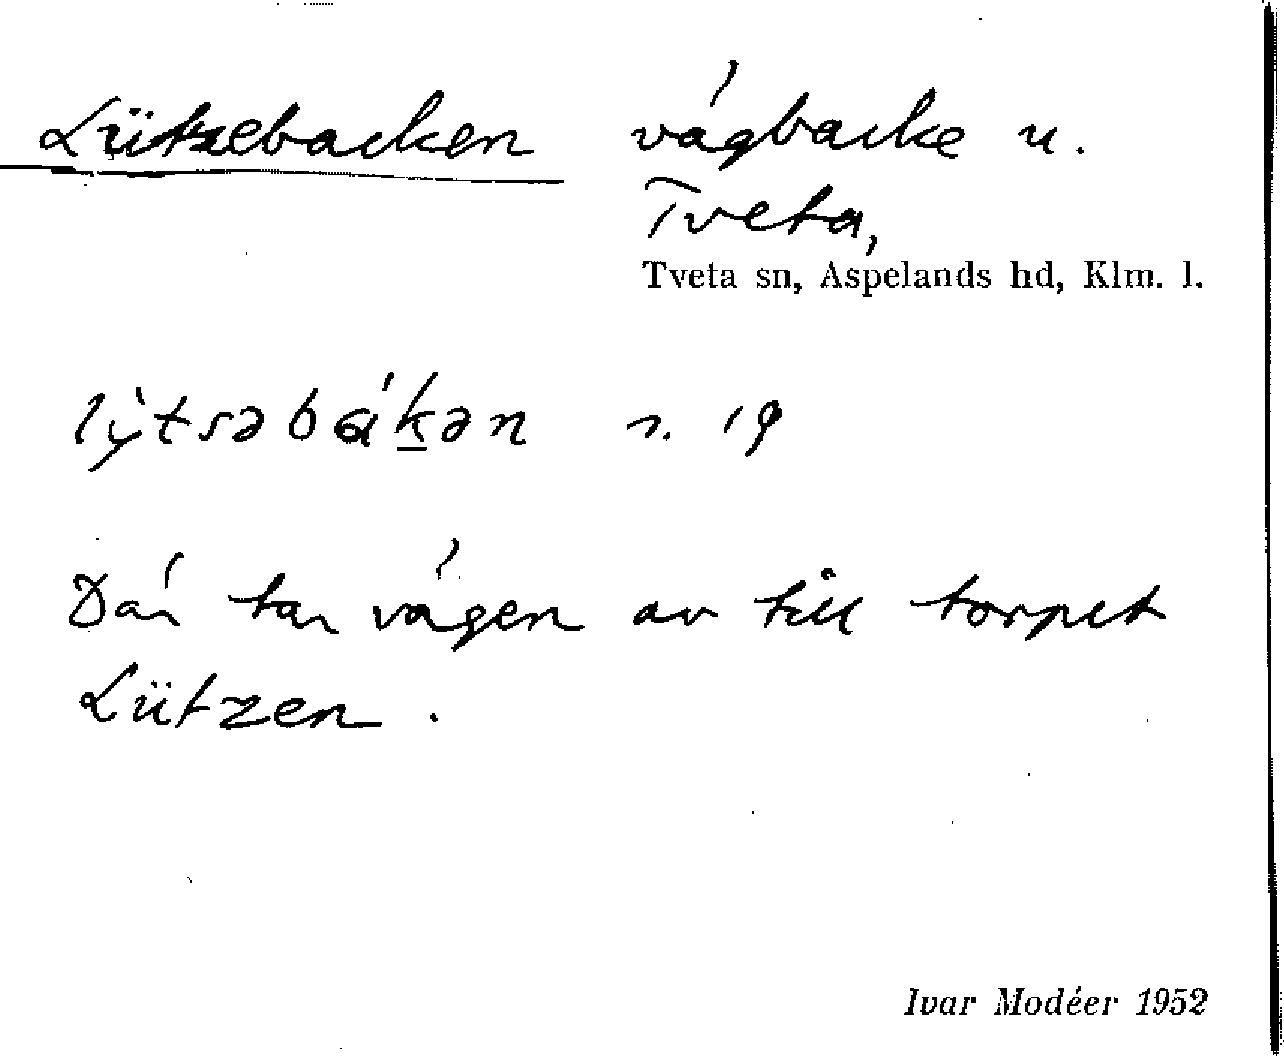 Lützebacken vägbacke u.
Tveta,
Tveta sn, Aspelands hd, Klm. l.
lỳtsəbákən s. 19
Där tar vägen av till torpet
Lützen.
Ivar Modéer 1952